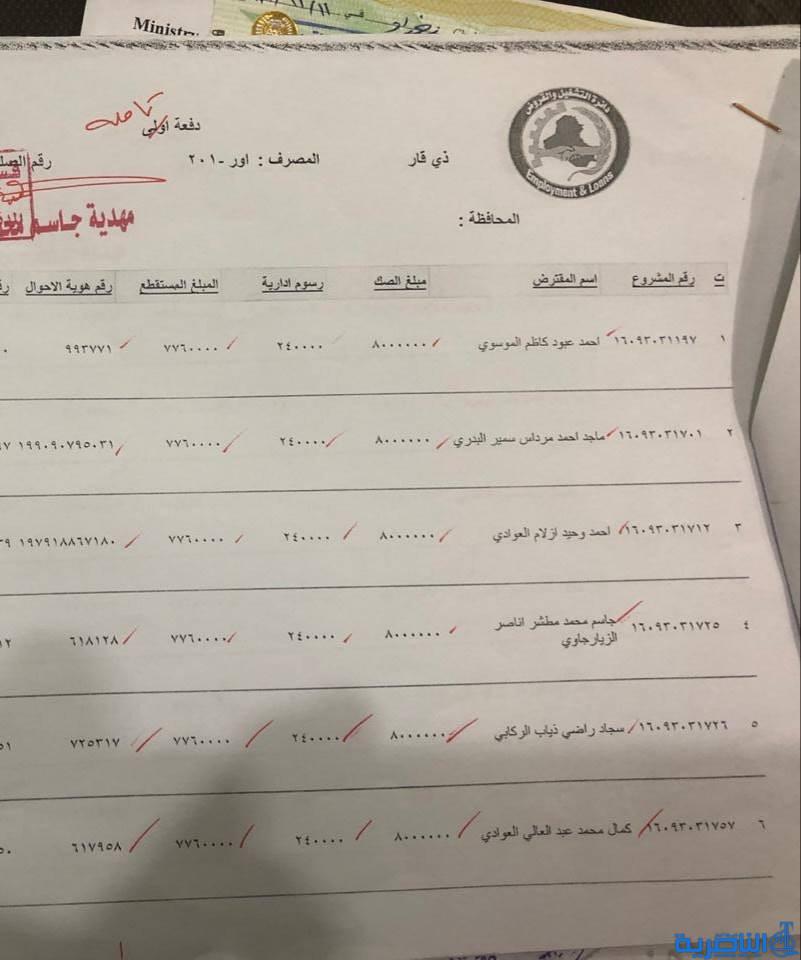 Ministry
دفعة اولى
تامه
دائرة التشغيل والقروض
Employment & Loans
ذي قار
المصرف : اور -٢٠١
رقم
المحافظة :
مهدية جاسم
ت رقم المشروع اسم المقترض مبلغ الصك رسوم ادارية المبلغ المستقطع رقم هوية الاحوال
١ ١٦٠٩٣٠٣١١٩٧ احمد عبود كاظم الموسوي ٨٠٠٠٠٠٠ ٢٤٠٠٠٠ ٧٧٦٠٠٠٠ ٩٩٣٧٧١
٢ ١٦٠٩٣٠٣١٧٠١ ماجد احمد مرداس سمير البدري ٨٠٠٠٠٠٠ ٢٤٠٠٠٠ ٧٧٦٠٠٠٠ ١٩٩٠٩٠٧٩٥٠٣١
٣ ١٦٠٩٣٠٣١٧١٢ احمد وحيد ازلام العوادي ٨٠٠٠٠٠٠ ٢٤٠٠٠٠ ٧٧٦٠٠٠٠ ١٩٧٩١٨٨٦٧١٨٠
٤ ١٦٠٩٣٠٣١٧٢٥ جاسم محمد مطشر اناصر ٨٠٠٠٠٠٠ ٢٤٠٠٠٠ ٧٧٦٠٠٠٠ ٦١٨١٢٨
الزيارجاوي
٥ ١٦٠٩٣٠٣١٧٢٦ سجاد راضي ذياب الركابي ٨٠٠٠٠٠٠ ٢٤٠٠٠٠ ٧٧٦٠٠٠٠ ٧٢٥٣١٧
٦ ١٦٠٩٣٠٣١٧٥٧ كمال محمد عبد العالي العوادي ٨٠٠٠٠٠٠ ٢٤٠٠٠٠ ٧٧٦٠٠٠٠ ٦١٧٩٥٨
الناصرية